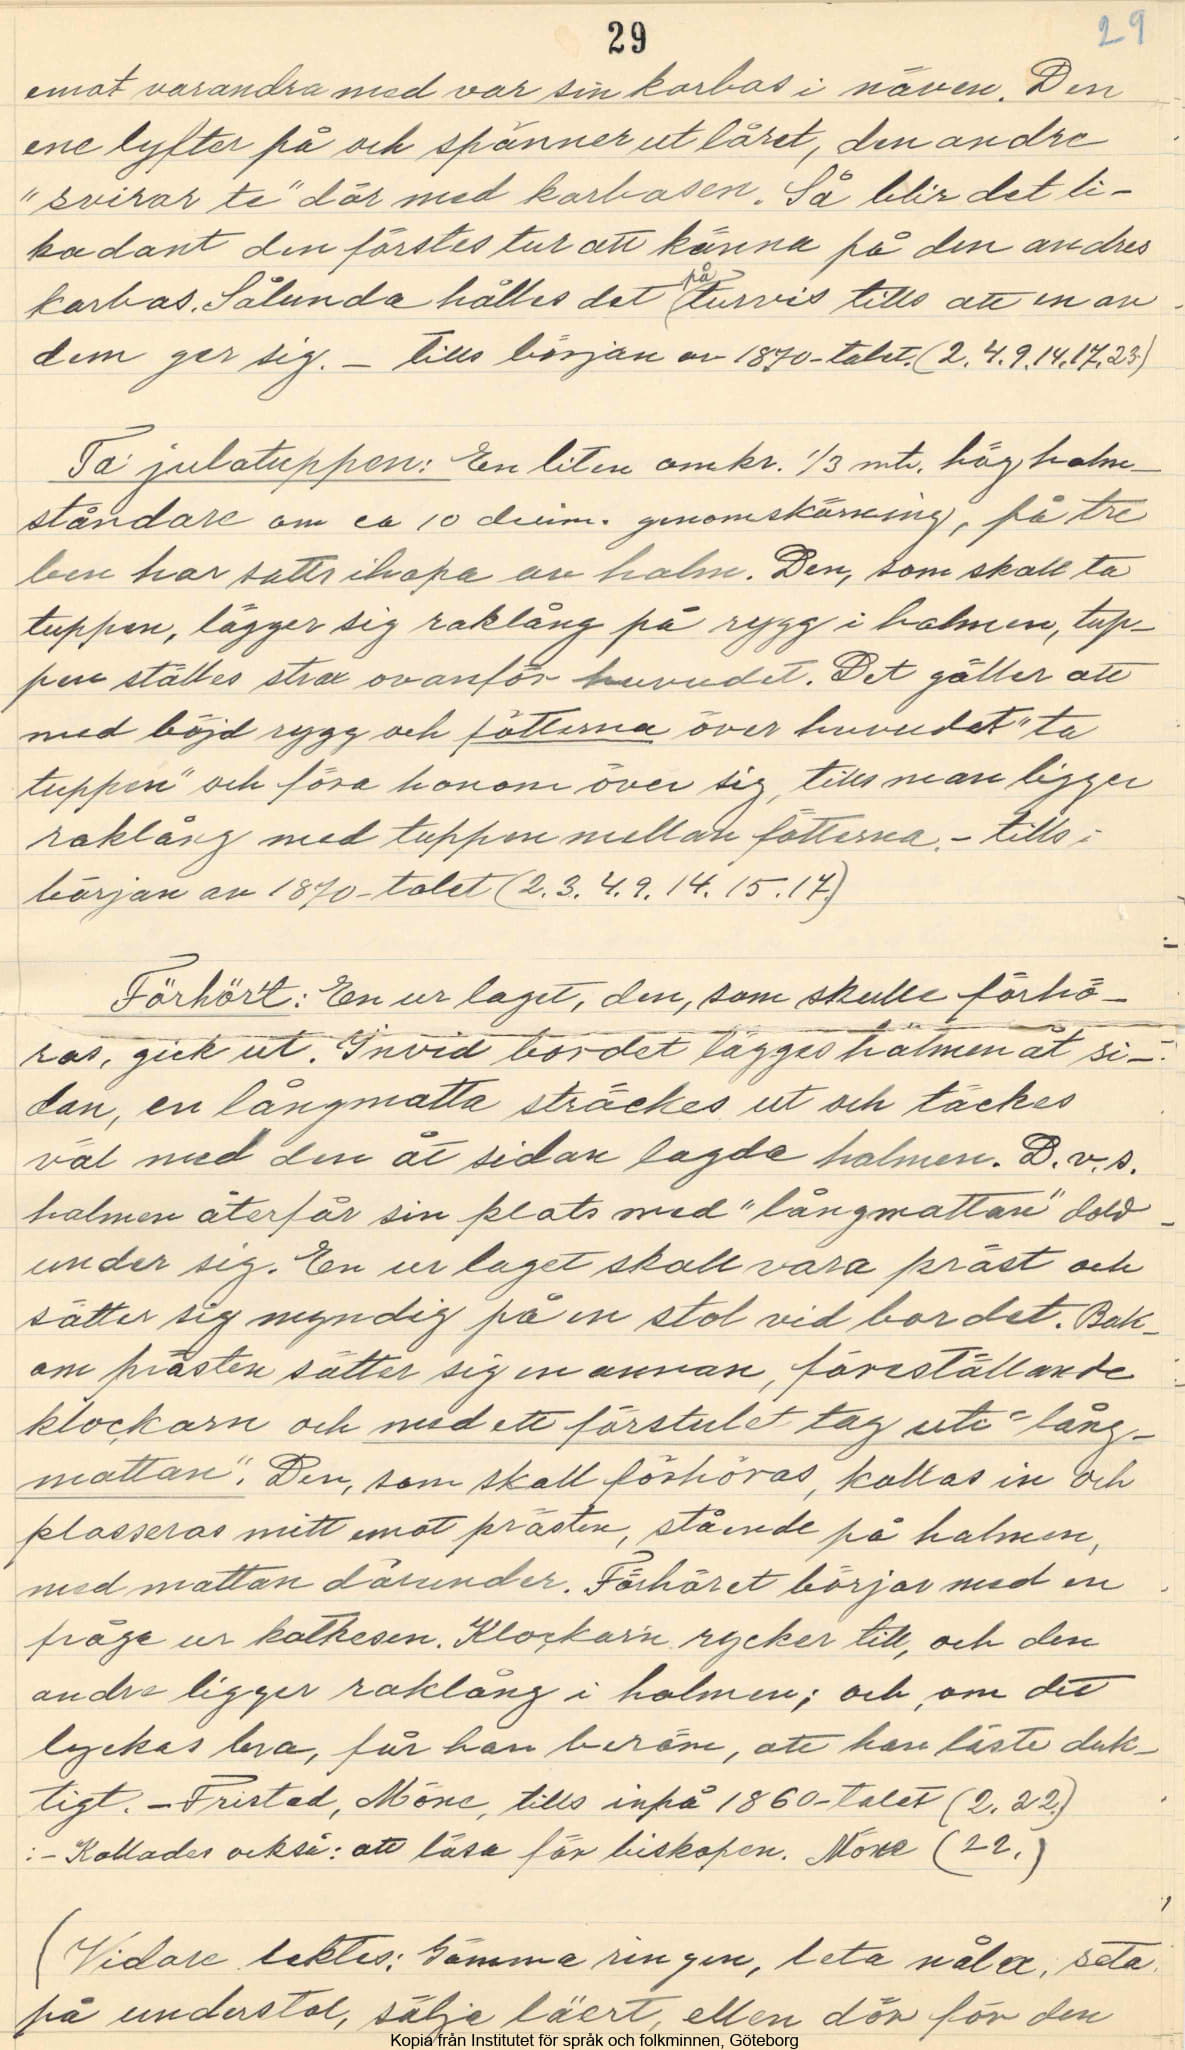 29
29
emot varandra med var sin karbas i näven. Den
ene lyfter på och spänner ut låret, den andre
"svirar te" där med karbasen. Så blir det li-
kadant den förstes tur att känna på den andres
karbas. Sålunda hålles det på turvis tills att en av
dem ger sig. – tills början av 1870-talet. (2. 4. 9. 14. 17. 23)
Ta julatuppen: En liten omkr. 1/3 mtr. hög halm-
ståndare om ca 10 genomskärning, på tre
ben har satts ihopa av halm. Den, som skall ta
tuppen, lägger sig raklång på rygg i halmen, tup-
pen ställes strax ovanför huvudet. Det gäller att
med böjd rygg och fötterna över huvudet "ta
tuppen" och föra honom över sig, tills man ligger
raklång med tuppen mellan fötterna. – tills i
början av 1870-talet (2. 3. 4. 9. 14. 15. 17.)
Förhör't: En ur laget, den, som skulle förhö-
ras, gick ut. Invid bordet lägges halmen åt si-
dan, en långmatta sträckes ut och täckes
väl med den åt sidan lagda halmen. D. v. s.
halmen återfår sin plats med "långmattan" dold
under sig. En ur laget skall vara präst och
sätter sig myndig på en stol vid bordet. Bak-
om prästen sätter sig en annan, föreställande
klockarn och med ett förstulet tag uti "lång-
mattan". Den, som skall förhöras, kallas in och
plasseras mitt emot prästen, stående på halmen,
med mattan därunder. Förhöret börjar med en
fråga ur katkesen. Klockar'n rycker till, och den
andre ligger raklång i halmen; och, om det
lyckas bra, får han beröm, att han läste duk-
tigt. – Fristad, Möne, tills inpå 1860-talet (2. 22.)
:- Kallades också: att läsa för biskopen. Möne (22.)
(Vidare lektes: Gömma ringen, leta nåla,
på understol, sälja läert, ellen dör för den
Kopia från Institutet för språk och folkminnen, Göteborg